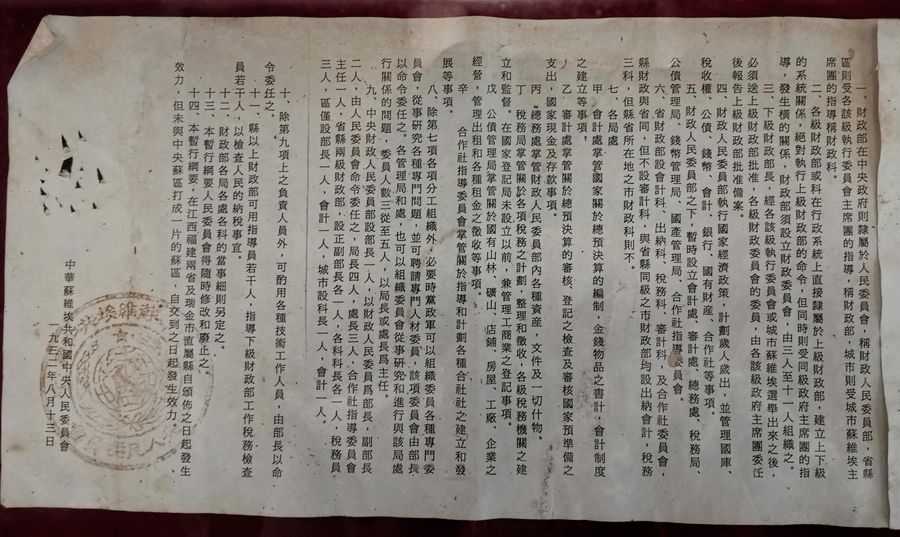 一、財政部在中央政府則隸屬於人民委員會，稱財政人民委員部，省縣
區則受各該級執行委員會主席團的指導，稱財政部，城市則受城市蘇維埃主
席團的指導稱財政科。
二、各級財政部或科在行政系統上直接隸屬於上級財政部，建立上下級
的系統關係，絕對執行上級財政部的命令，但同時則受同級政府主席團的指
導，發生橫的關係，財政部須設立財政委員會，由三人至十一人組織之。
三、下級財政部長，經各該級執行委員會或城市蘇維埃選舉出來之後，
必須送上級財政部批准，各級財政委員會的委員，由各該級政府主席團委任
後報告上級財政部批准備案。
四、財政人民委員部執行國家經濟政策，計劃歲入歲出，並管理國庫、
稅收權、公債、錢幣、會計、銀行、國有財產、合作社等事項。
五、財政人民委員部之下，暫時設立會計處、審計處、總務處、稅務局、
公債管理局、錢幣管理局、國產管理局、合作社指導委員會。
六、省財政部設會計科、出納科、稅務科、審計科，及合作社委員會，
縣財政與省同，但不設審計科，與省縣同級之市財政部均設出納會計，稅務
三科，但縣省所在地之市財政科則不
七、各局處
甲、會計處掌管國家關於總預決算的編制，金錢物品之書計，會計制度
之建立等事項。
乙、審計處掌管關於總預決算的審核、登記之檢查及審核國家預準備之
支出，國家現金及存款事項。
丙、總務處掌管財政人民委員部內各種資產，文件及一切什物。
丁、稅務局掌管關於各項稅務之計劃，整理和徵收，各級稅務機關之建
立和監督。在國家登記局未設立以前，兼管理工商業之登記事項。
戊、公債管理局掌管關於國有山林、礦山、店鋪、房屋、工廠、企業之
經營，管理出租和各種租金之徵收等事項。
辛、合作社指導委員會掌管關於指導和計劃各種合社社之建立和發
展等事項。
八、除第七項各項分工組織外，必要時黨政軍可以組織委員各種專門委
員會，從事研究各種專門問題，並可聘請專門人材委員，該項委員會由部長
以命令委任之。各管理局和處，也可以組織委員會從事研究和進行與該局處
行關係的問題，委員人數三從至五人，以局長或處長爲主任。
九、中央財政人民委員部設部長一人，以財政人民委員爲部長，副部長
二人，由人民委員會命令委任之，局長四人，處長三人，合作社指導委員會
主任一人，省縣兩級財政部，設正副部長各一人，各科科長各一人，稅務員
三人，區僅設部長一人，會計一人，城市設科長一人，會計一人。
十、除第九項上之負責人員外，可酌用各種技術工作人員，由部長以命
令委任之。
十一、縣以上財政部可用指導員若干人，指導下級財政部工作稅務檢查
員若干人，以檢查人民的納稅事宜。
十二、財政部各局各處各科的當事細則另定之。
十三、本暫行綱要人民委員會得隨時修改和廢止之。
十四、本暫行綱要，在江西福建兩省及瑞金市直屬縣自頒佈之日起發生
效力，但未與中央蘇區打成一片的蘇區，自交到之日起發生效力。
中華蘇維埃共和國中央人民委員會
一九三二年八月十三日